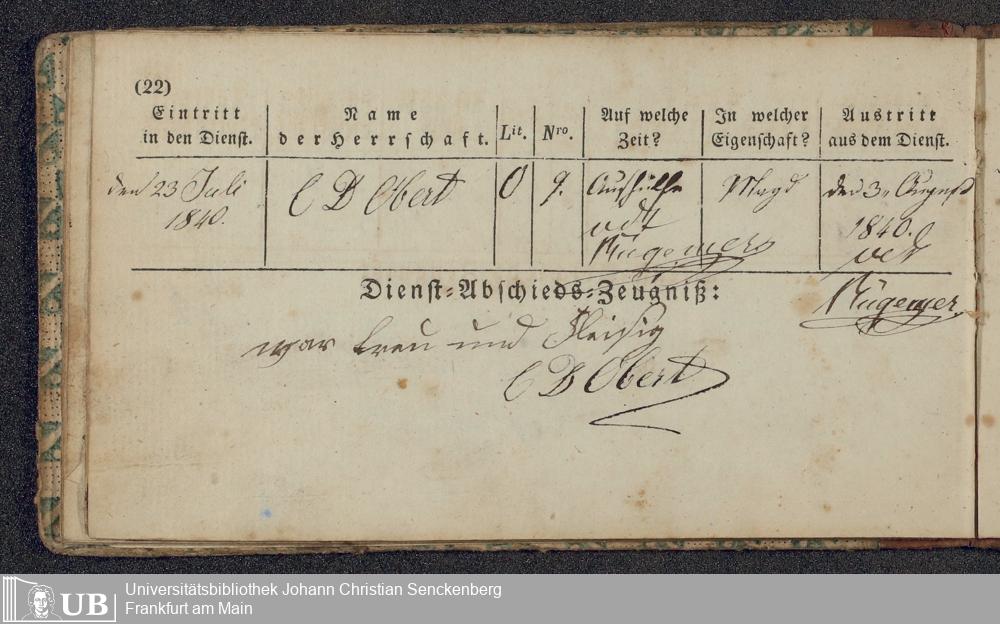 (22)
Eintritt in den Dienst.
Name der Herrschaft.
Lit.
Nro.
Auf welche Zeit?
In welcher Eigenschaft?
Austritt aus dem Dienst.
den 23 Juli
1840.
C D Obert
O
9.
Aushülfe
vdt
Rügemer
Magd
den 3. August
1840.
vdt
Rügemer
Dienst-Abschieds-Zeugniß:
war treu und fleisig
C D Obert
UB
Universitätsbibliothek Johann Christian Senckenberg
Frankfurt am Main